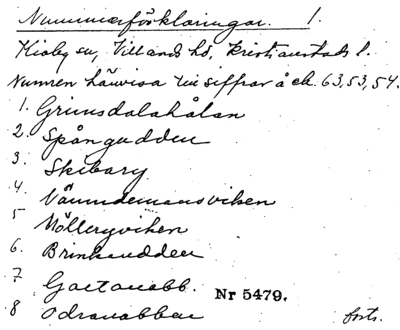 Nummerförklaringar. 1.
Kiaby sn, Villands hd, Kristianstads l.
Numren hänvisa till siffror å ek. 63,53,54.
1. Grimsdalahålan
2. Spångudden
3. Skibarg
4. Nämndemansviken
5 Möllerviken
6. Brinkaudden
7
Nr 5479.
8 Odranabben
forts.